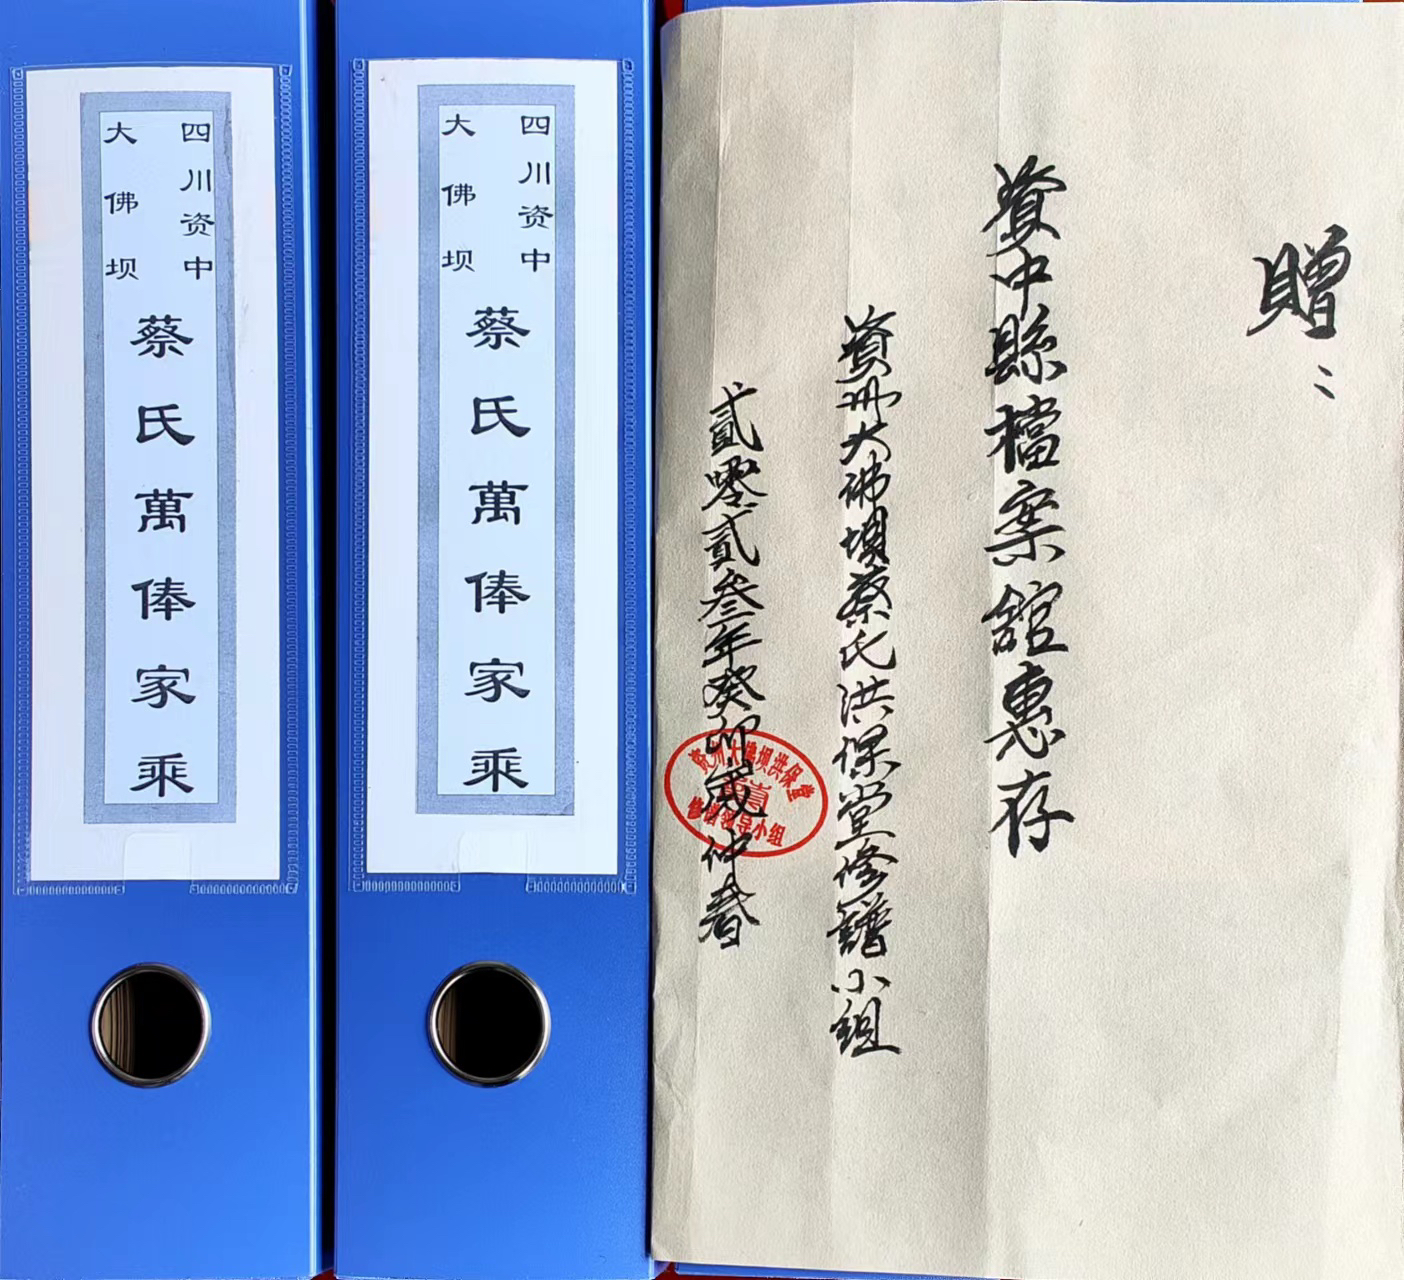 四川资中
大佛坝
蔡氏萬俸家乘
四川资中
大佛坝
蔡氏萬俸家乘
贈:
資中縣檔案舘惠存
資州大佛坝蔡氏洪保堂修譜小組
貳零貳叁年癸卯歲仲春
资州大佛坝洪保堂
修谱领导小组